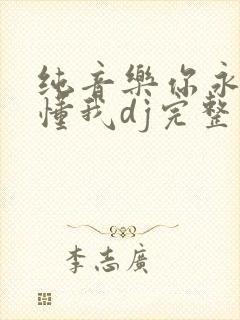 纯音乐你永
懂我dj完整
李志廣